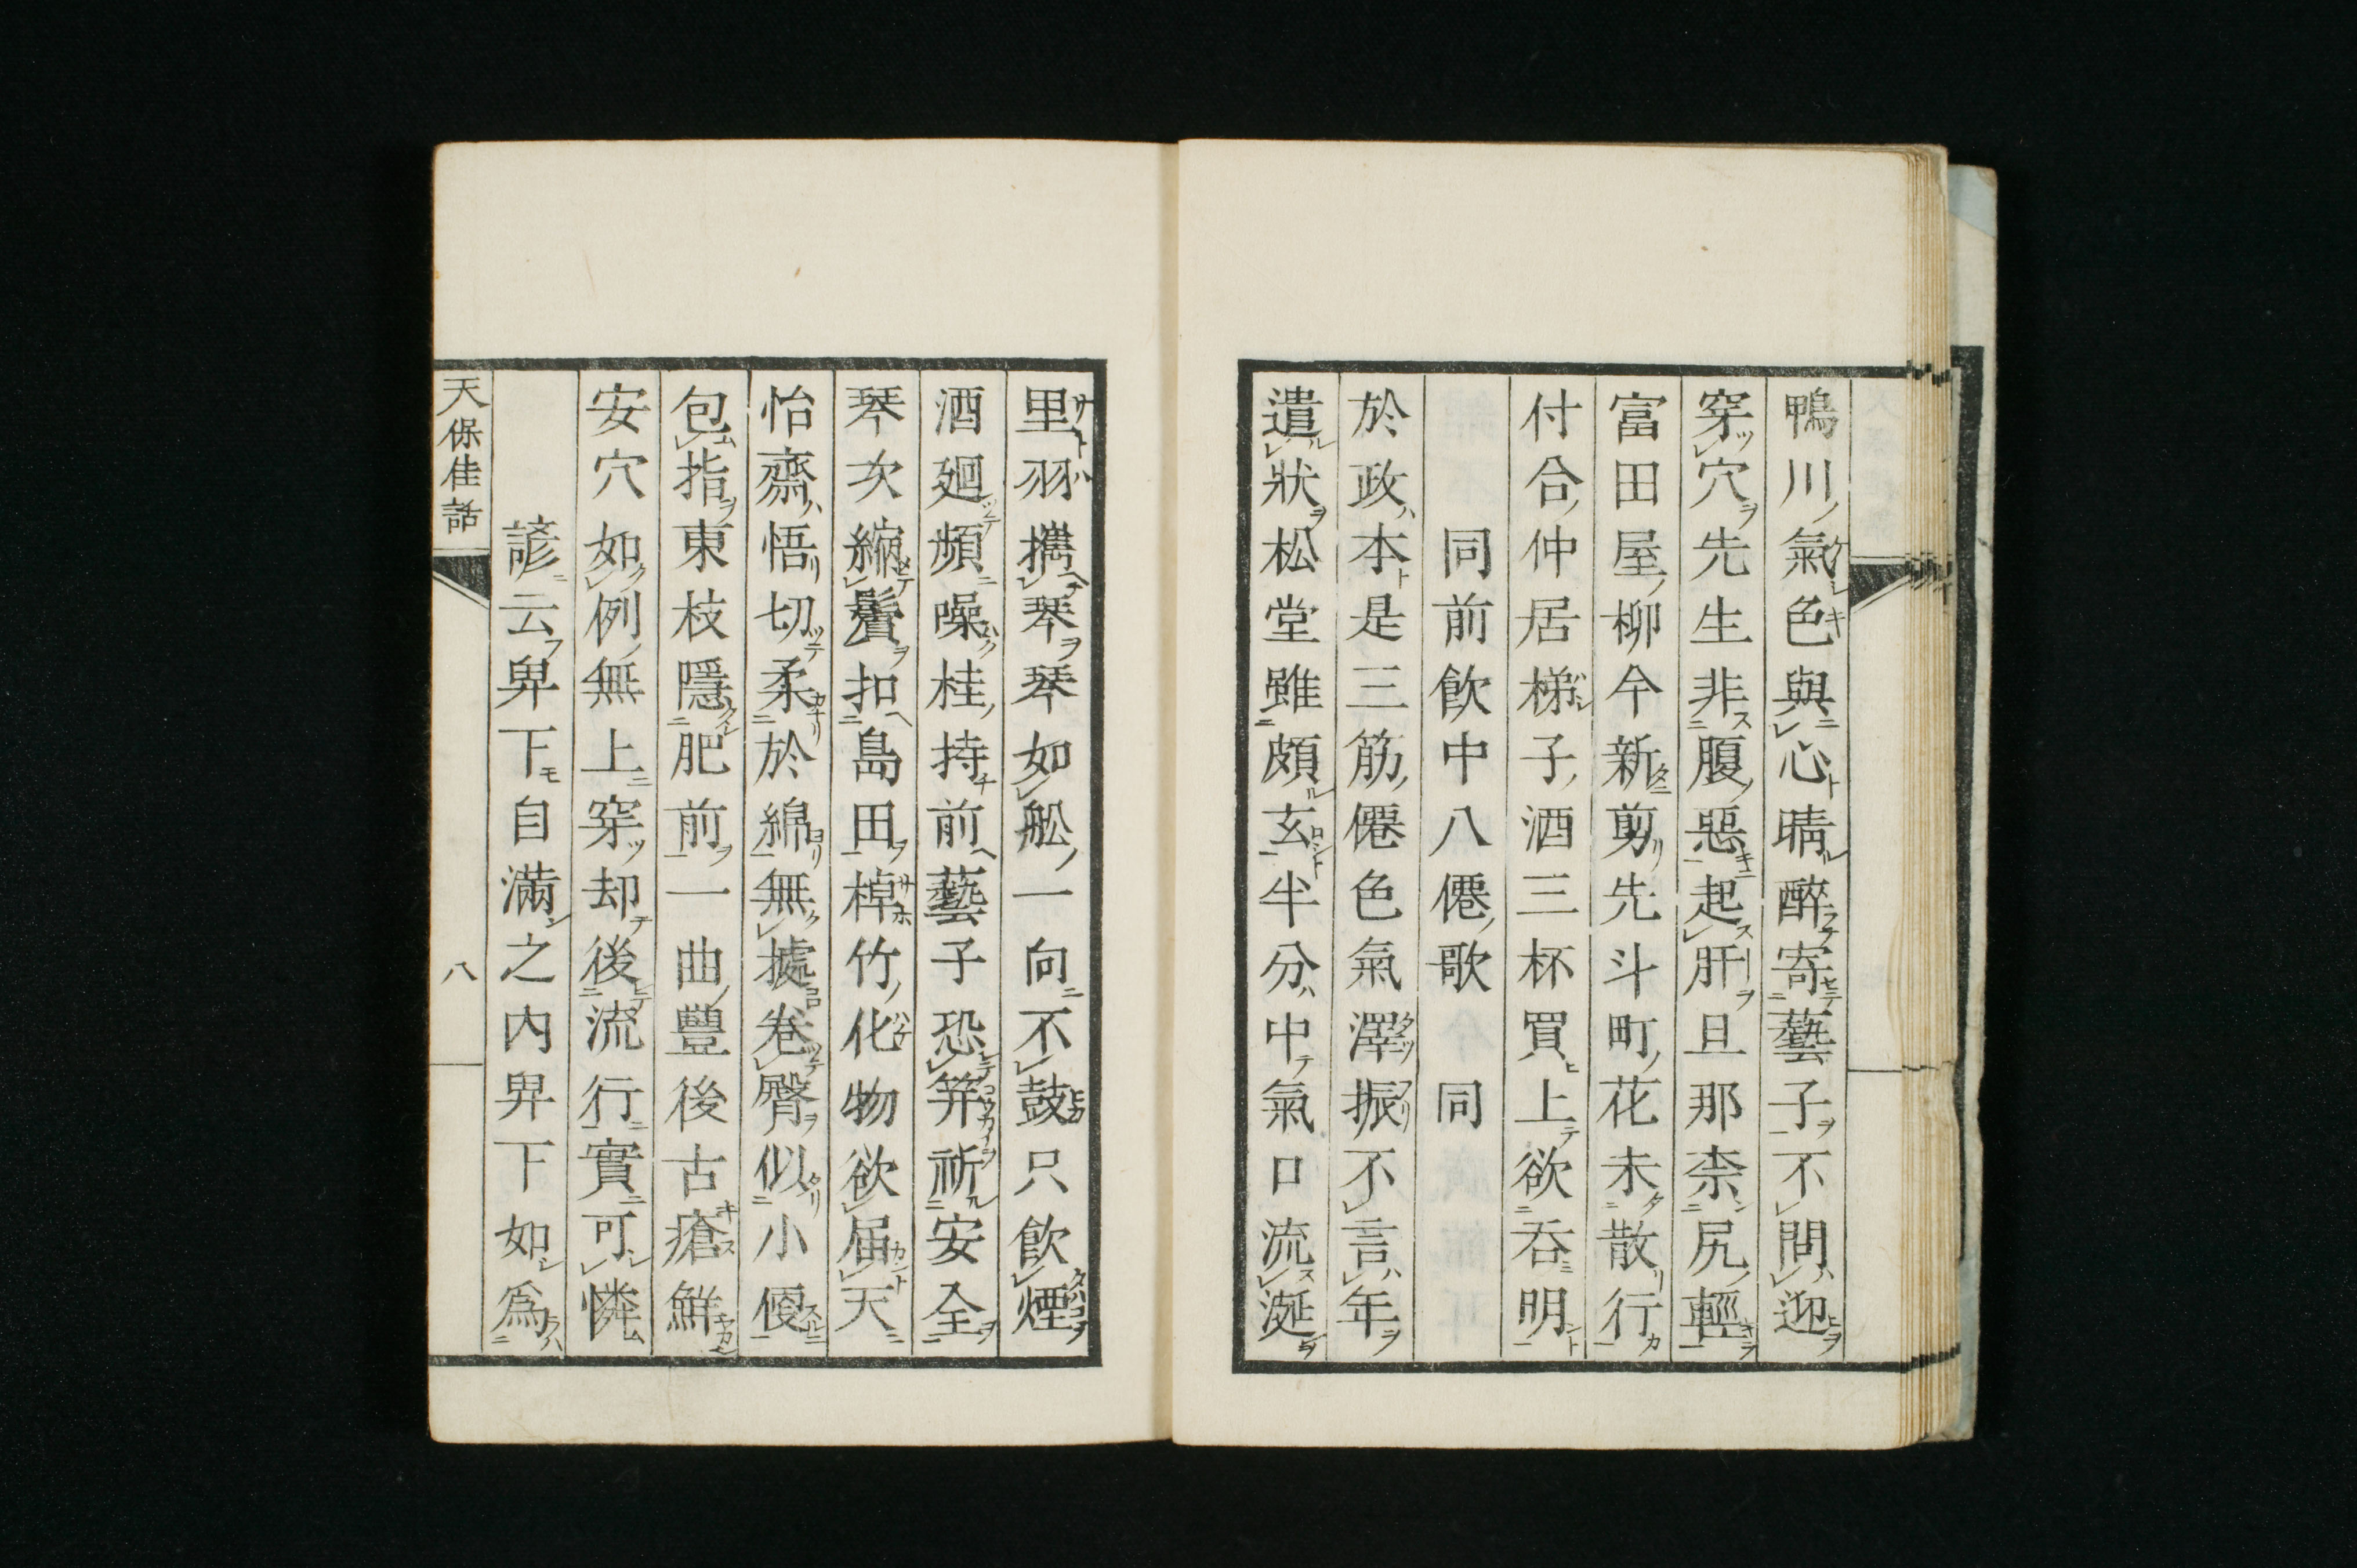 鴨川氣色與心晴醉寄藝子不問迎
穿穴先生非腹惡起肝旦那柰尻輕
富田屋柳今新剪先斗町花未散行
付合仲居梯子酒三杯買上欲呑明
同前飲中八僊歌 同
於政本是三筋僊色氣澤振不言年
遣狀松堂雖頗玄半分中氣口流涎
里羽携琴琴如舩一向不鼓只飲煙
酒廻頻噪桂持前藝子恐筓祈安全
琴次縮鬢扣島田棹竹化物欲届天
怡齋悟切柔於綿無據卷臀似小偃
包指東枝隱肥前一曲豐後古瘡鮮
安穴如例無上穿却後流行實可憐
諺云卑下自滿之内卑下如爲
天保佳話 八